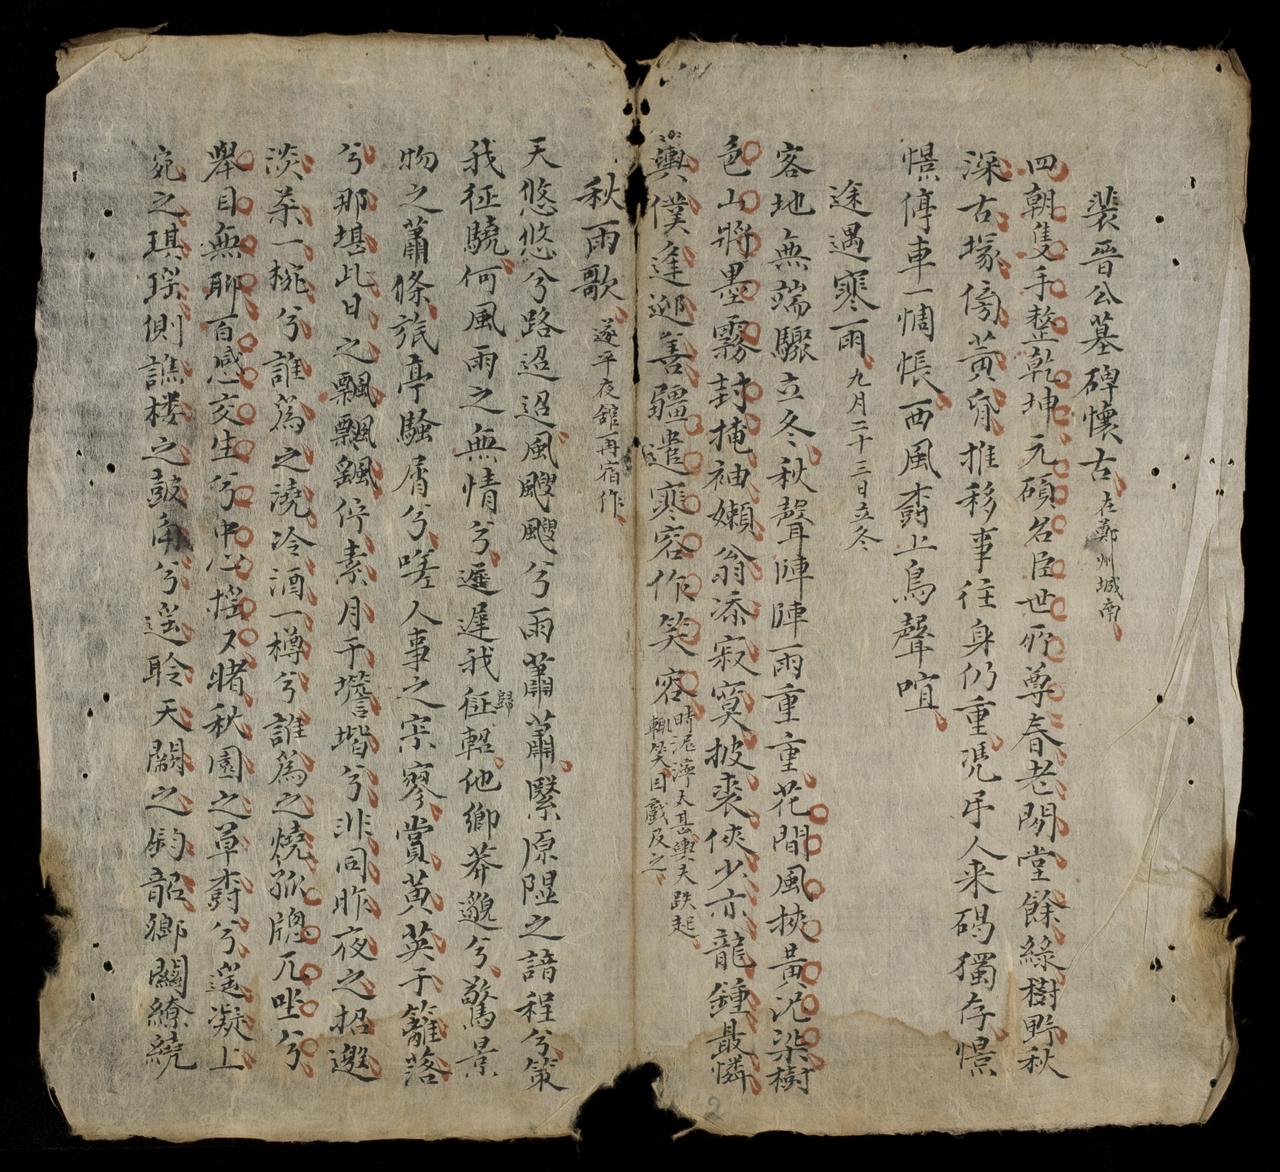 裴晉公墓碑懷古在鄭州城南
四朝隻手整乾坤元碩名臣世所尊春老閣堂餘綠樹野秋
深古塚傍黃昏推移事往身仍重憑弔人来碣獨存憬
憬停車一惆悵西風樹上鳥聲喧
途遇寒雨九月二十三日立冬
客地無端驟立冬秋聲陣陣雨重重花間風挾黃泥染樹
色山將墨霧封掩袖嫩翁添寂寞披裘俠少亦龍鍾最憐
輿僕逢迎善疆遣寒容作笑容時泥濘太甚輿夫跌起
輒笑因戲及之
秋雨歌遂平夜館再宿作
天悠悠兮路迢迢風颼颼兮雨蕭蕭緊原隰之諳程兮策
我征驍何風雨之無情兮遲遲我征歸軺他鄉莽邈兮驚景
物之蕭條旅亭騷屑兮嗟人事之宗寥賞黃英于籬落
兮那堪此日之飄飄飄停素月于簷堦兮非同昨夜之招邀
淡茶一椀兮誰為之澆冷酒一樽兮誰為之燒孤牎兀坐兮
舉目無聊百感交生兮中心搖又睹秋園之草樹兮遥凝上
宛之琪瑶側譙楼之鼓角兮遥聆天闕之鈞韶鄉關繚繞